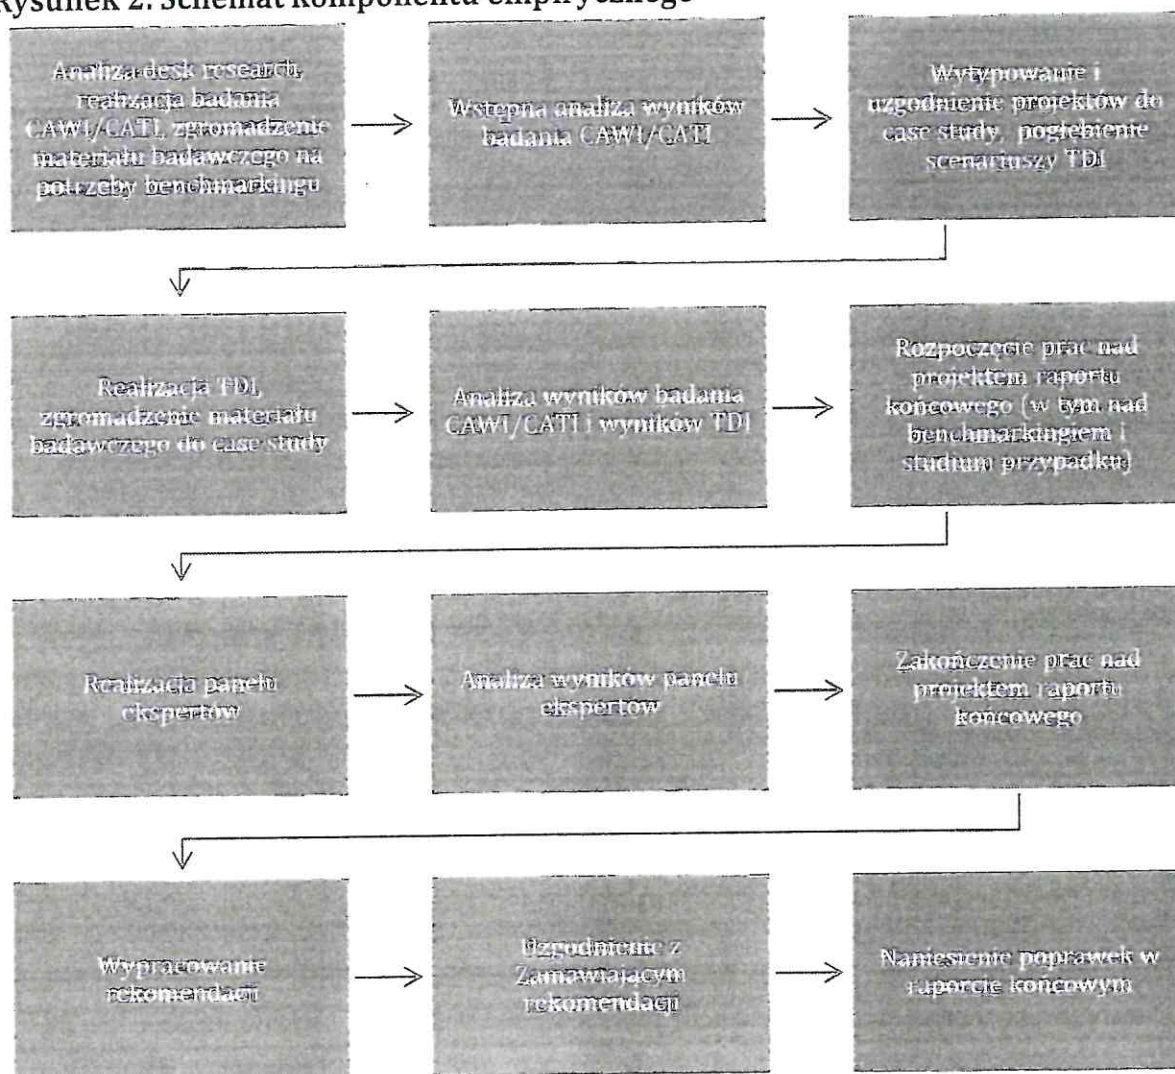 Rysunek 2. Schemat komponentu empirycznego
Analiza desk research,
realizacja badania
CAWI/CATI, zgromadzenie
materiału badawczego na
potrzeby benchmarkingu
Wstępna analiza wyników
badania CAWI/CATI
Wytypowanie i
uzgodnienie projektów do
case study, pogłębienie
scenariuszy TDI
Realizacja TDI,
zgromadzenie materiału
badawczego do case study
Analiza wyników badania
CAWI/CATI i wyników TDI
Rozpoczęcie prac nad
projektem raportu
końcowego (w tym nad
benchmarkingiem i
studium przypadku)
Realizacja panelu
ekspertów
Analiza wyników panelu
ekspertów
Zakończenie prac nad
projektem raportu
końcowego
Wypracowanie
rekomendacji
Uzgodnienie z
Zamawiającym
rekomendacji
Naniesienie poprawek w
raporcie końcowym